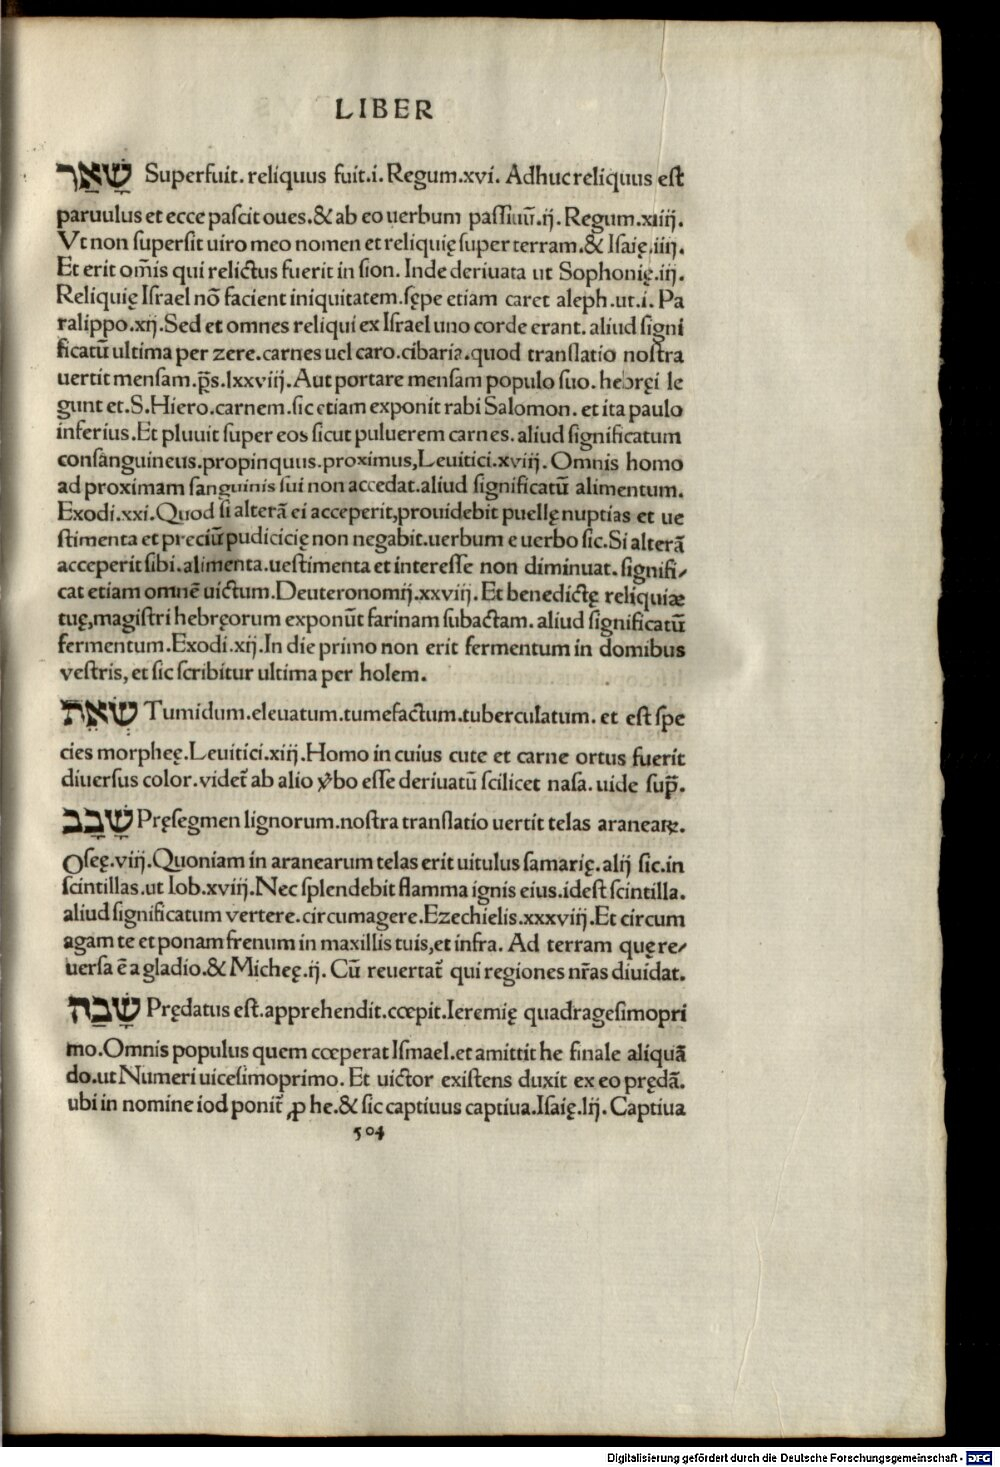 LIBER
שָׁאַר Superfuit. reliquus fuit.i. Regum.xvi. Adhuc reliquus est
paruulus et ecce pascit oues.& ab eo uerbum passiuū.ij. Regum.xiiij.
Vt non supersit uiro meo nomen et reliquię super terram.& Isaię.iiij.
Et erit om̄is qui relictus fuerit in sion. Inde deriuata ut Sophonię.iij.
Reliquię Israel nō facient iniquitatem.sępe etiam caret aleph.ut.i. Pa
ralippo.xij.Sed et omnes reliqui ex Israel uno corde erant. aliud signi
ficatū ultima per zere.carnes uel caro.cibaria.quod translatio nostra
uertit mensam.p̄s.lxxviij.Aut portare mensam populo suo. hebręi le
gunt et.S.Hiero.carnem.sic etiam exponit rabi Salomon. et ita paulo
inferius.Et pluuit super eos sicut puluerem carnes. aliud significatum
consanguineus.propinquus.proximus,Leuitici.xviij. Omnis homo
ad proximam sanguinis sui non accedat.aliud significatū alimentum.
Exodi.xxi.Quod si alterā ei acceperit,prouidebit puellę nuptias et ue
stimenta et preciū pudicicię non negabit.uerbum e uerbo sic.Si alterā
acceperit sibi.alimenta.uestimenta et interesse non diminuat. signifi⸗
cat etiam omnē uictum.Deuteronomij.xxviij. Et benedictę reliquiæ
tuę,magistri hebręorum exponūt farinam subactam. aliud significatū
fermentum.Exodi.xij.In die primo non erit fermentum in domibus
vestris, et sic scribitur ultima per holem.
שְׂאֵת Tumidum.eleuatum.tumefactum.tuberculatum. et est spe
cies morpheę.Leuitici.xiij.Homo in cuius cute et carne ortus fuerit
diuersus color.videt̄ ab alio v̄bo esse deriuatū scilicet nasa. uide sup̄.
שָׁבָב Pręsegmen lignorum.nostra translatio uertit telas araneaꝝ.
Oseę.viij.Quoniam in aranearum telas erit uitulus samarię. alij sic.in
scintillas.ut Iob.xviij.Nec splendebit flamma ignis eius.idest scintilla.
aliud significatum vertere.circumagere.Ezechielis.xxxviij.Et circum
agam te et ponam frenum in maxillis tuis,et infra. Ad terram quę re⸗
uersa ē a gladio.& Micheę.ij. Cū reuertat̄ qui regiones nr̄as diuidat.
שָׁבַה Prędatus est.apprehendit.cœpit.Ieremię quadragesimopri
mo.Omnis populus quem cœperat Ismael.et amittit he finale aliquā
do.ut Numeri uicesimoprimo. Et uictor existens duxit ex eo prędā.
ubi in nomine iod ponit̄ ꝓ he.& sic captiuus captiua.Isaię.lij. Captiua
504
Digitalisierung gefördert durch die Deutsche Forschungsgemeinschaft - DFG